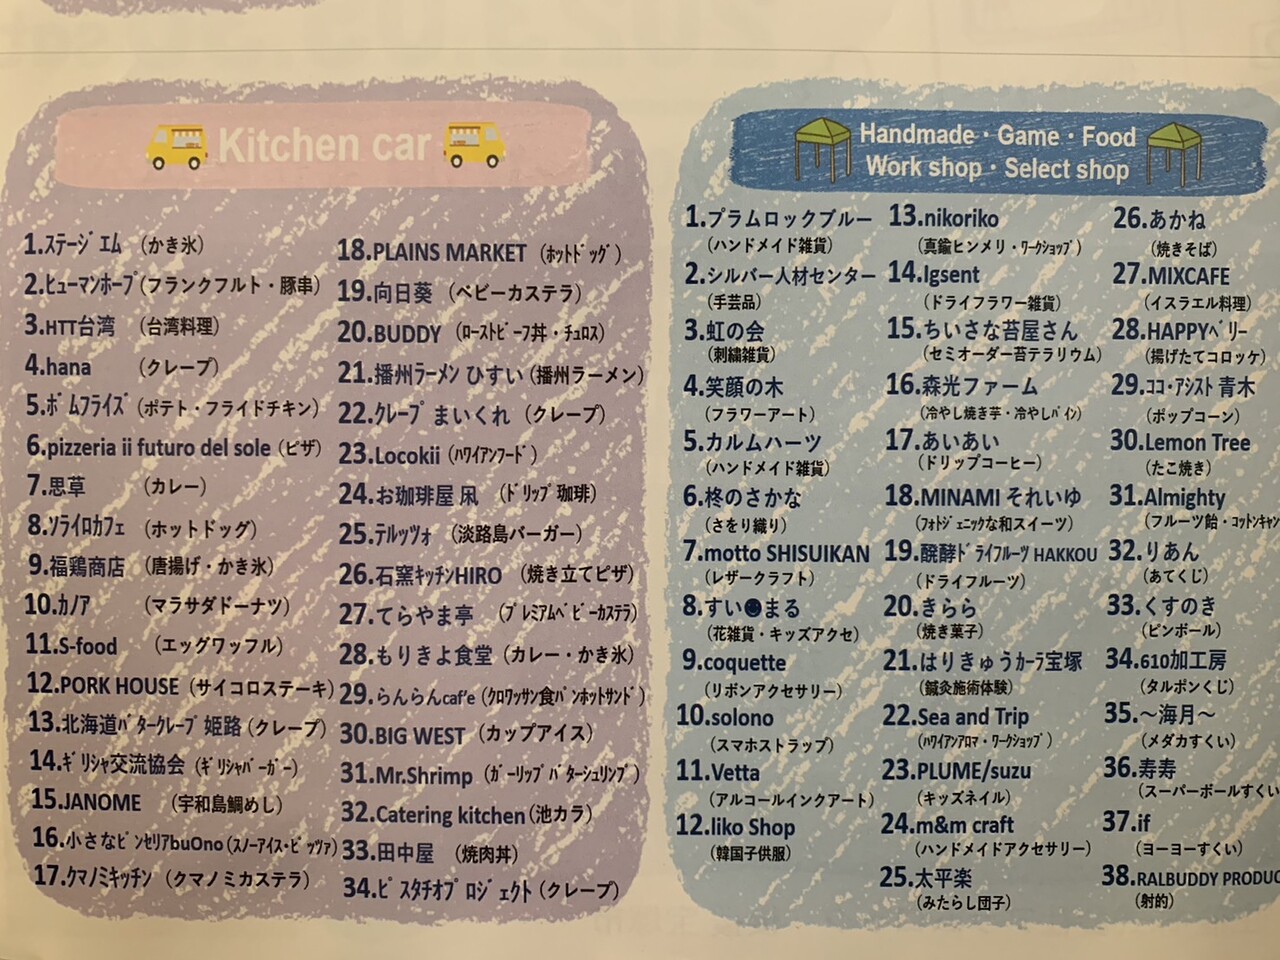 Kitchen car
1.ｽﾃｰｼﾞｴﾑ （かき氷）
2.ﾋｭｰﾏﾝﾎｰﾌﾟ（フランクフルト・豚串）
3.HTT台湾 （台湾料理）
4.hana （クレープ）
5.ﾎﾞﾑﾌﾗｲｽﾞ（ポテト・フライドチキン）
6.pizzeria ii futuro del sole（ピザ）
7.思草 （カレー）
8.ｿﾗｲﾛｶﾌｪ （ホットドッグ）
9.福鶏商店 （唐揚げ・かき氷）
10.ｶﾉｱ （マラサダドーナツ）
11.S-food （エッグワッフル）
12.PORK HOUSE（サイコロステーキ）
13.北海道ﾊﾞﾀｰｸﾚｰﾌﾟ姫路（クレープ）
14.ｷﾞﾘｼｬ交流協会（ｷﾞﾘｼｬﾊﾞｰｶﾞｰ）
15.JANOME （宇和島鯛めし）
16.小さなﾋﾟﾝｾﾘｱbuOno（ｽﾉｰｱｲｽ・ﾋﾟｯﾂｧ）
17.ｸﾏﾉﾐｷｯﾁﾝ（クマノミカステラ）
18.PLAINS MARKET（ﾎｯﾄﾄﾞｯｸﾞ）
19.向日葵（ベビーカステラ）
20.BUDDY（ﾛｰｽﾄﾋﾞｰﾌ丼・ﾁｭﾛｽ）
21.播州ﾗｰﾒﾝ ひすい（播州ラーメン）
22.ｸﾚｰﾌﾟ まいくれ（クレープ）
23.Locokii（ﾊﾜｲｱﾝﾌｰﾄﾞ）
24.お珈琲屋 凩（ﾄﾞﾘｯﾌﾟ珈琲）
25.ﾃﾙｯﾂｫ（淡路島バーガー）
26.石窯ｷｯﾁﾝHIRO（焼き立てピザ）
27.てらやま亭（ﾌﾟﾚﾐｱﾑﾍﾞﾋﾞｰｶｽﾃﾗ）
28.もりきよ食堂（カレー・かき氷）
29.らんらんcaf'e（ｸﾛﾜｯｻﾝ食ﾊﾟﾝﾎｯﾄｻﾝﾄﾞ）
30.BIG WEST（カップアイス）
31.Mr.Shrimp（ｶﾞｰﾘｯﾌﾟﾊﾞﾀｰｼｭﾘﾝﾌﾟ）
32.Catering kitchen（池カラ）
33.田中屋（焼肉丼）
34.ﾋﾟｽﾀﾁｵﾌﾟﾛｼﾞｪｸﾄ（クレープ）
Handmade・Game・Food
Work shop・Select shop
1.プラムロックブルー
（ハンドメイド雑貨）
2.シルバー人材センター
（手芸品）
3.虹の会
（刺繍雑貨）
4.笑顔の木
（フラワーアート）
5.カルムハーツ
（ハンドメイド雑貨）
6.柊のさかな
（さをり織り）
7.motto SHISUIKAN
（レザークラフト）
8.すい☻まる
（花雑貨・キッズアクセ）
9.coquette
（リボンアクセサリー）
10.solono
（スマホストラップ）
11.Vetta
（アルコールインクアート）
12.liko Shop
（韓国子供服）
13.nikoriko
（真鍮ヒンメリ・ﾜｰｸｼｮｯﾌﾟ）
14.Igsent
（ドライフラワー雑貨）
15.ちいさな苔屋さん
（セミオーダー苔テラリウム）
16.森光ファーム
（冷やし焼き芋・冷やしﾊﾟｲﾝ）
17.あいあい
（ドリップコーヒー）
18.MINAMI それいゆ
（ﾌｫﾄｼﾞｪﾆｯｸな和スイーツ）
19.醗酵ﾄﾞﾗｲﾌﾙｰﾂ HAKKOU
（ドライフルーツ）
20.きらら
（焼き菓子）
21.はりきゅうｶｰﾗ宝塚
（鍼灸施術体験）
22.Sea and Trip
（ﾊﾜｲｱﾝｱﾛﾏ・ﾜｰｸｼｮｯﾌﾟ）
23.PLUME/suzu
（キッズネイル）
24.m&m craft
（ハンドメイドアクセサリー）
25.太平楽
（みたらし団子）
26.あかね
（焼きそば）
27.MIXCAFE
（イスラエル料理）
28.HAPPYﾍﾞﾘｰ
（揚げたてコロッケ）
29.ｺｺ･ｱｼｽﾄ 青木
（ポップコーン）
30.Lemon Tree
（たこ焼き）
31.Almighty
（フルーツ飴・ｺｯﾄﾝｷｬﾝ
32.りあん
（あてくじ）
33.くすのき
（ピンボール）
34.610加工房
（タルポンくじ）
35.～海月～
（メダカすくい）
36.寿寿
（スーパーボールすくい
37.if
（ヨーヨーすくい）
38.RALBUDDY PRODUC
（射的）